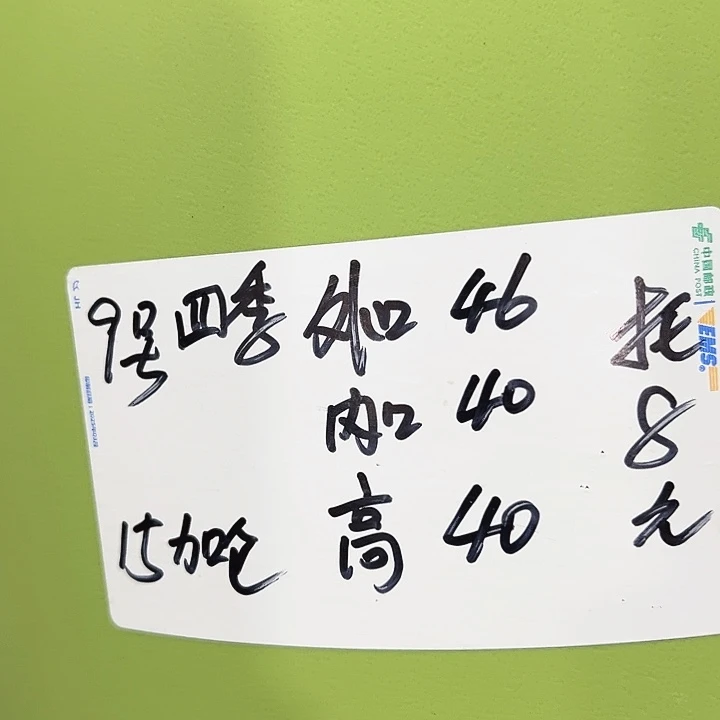 9号 四季 外口 46 托
内口 40 8
15加吃 高 40 元
中国邮政
CHINA POST
EMS